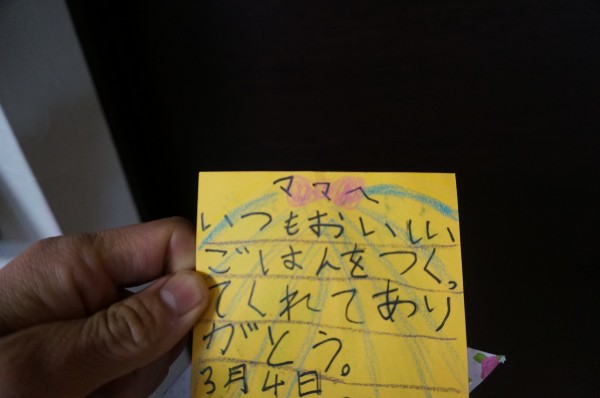 ママへ
いつもおいしい
ごはんをつくっ
てくれてあり
がとう。
3月4日